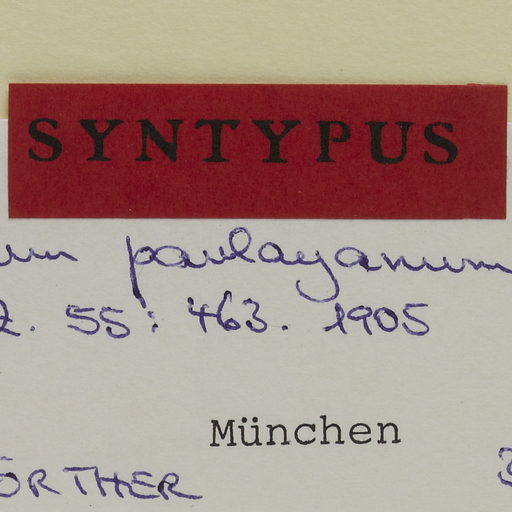 SYNTYPUS
um paulayanum
Z. 55: 463. 1905
München
ÖRTHER 3